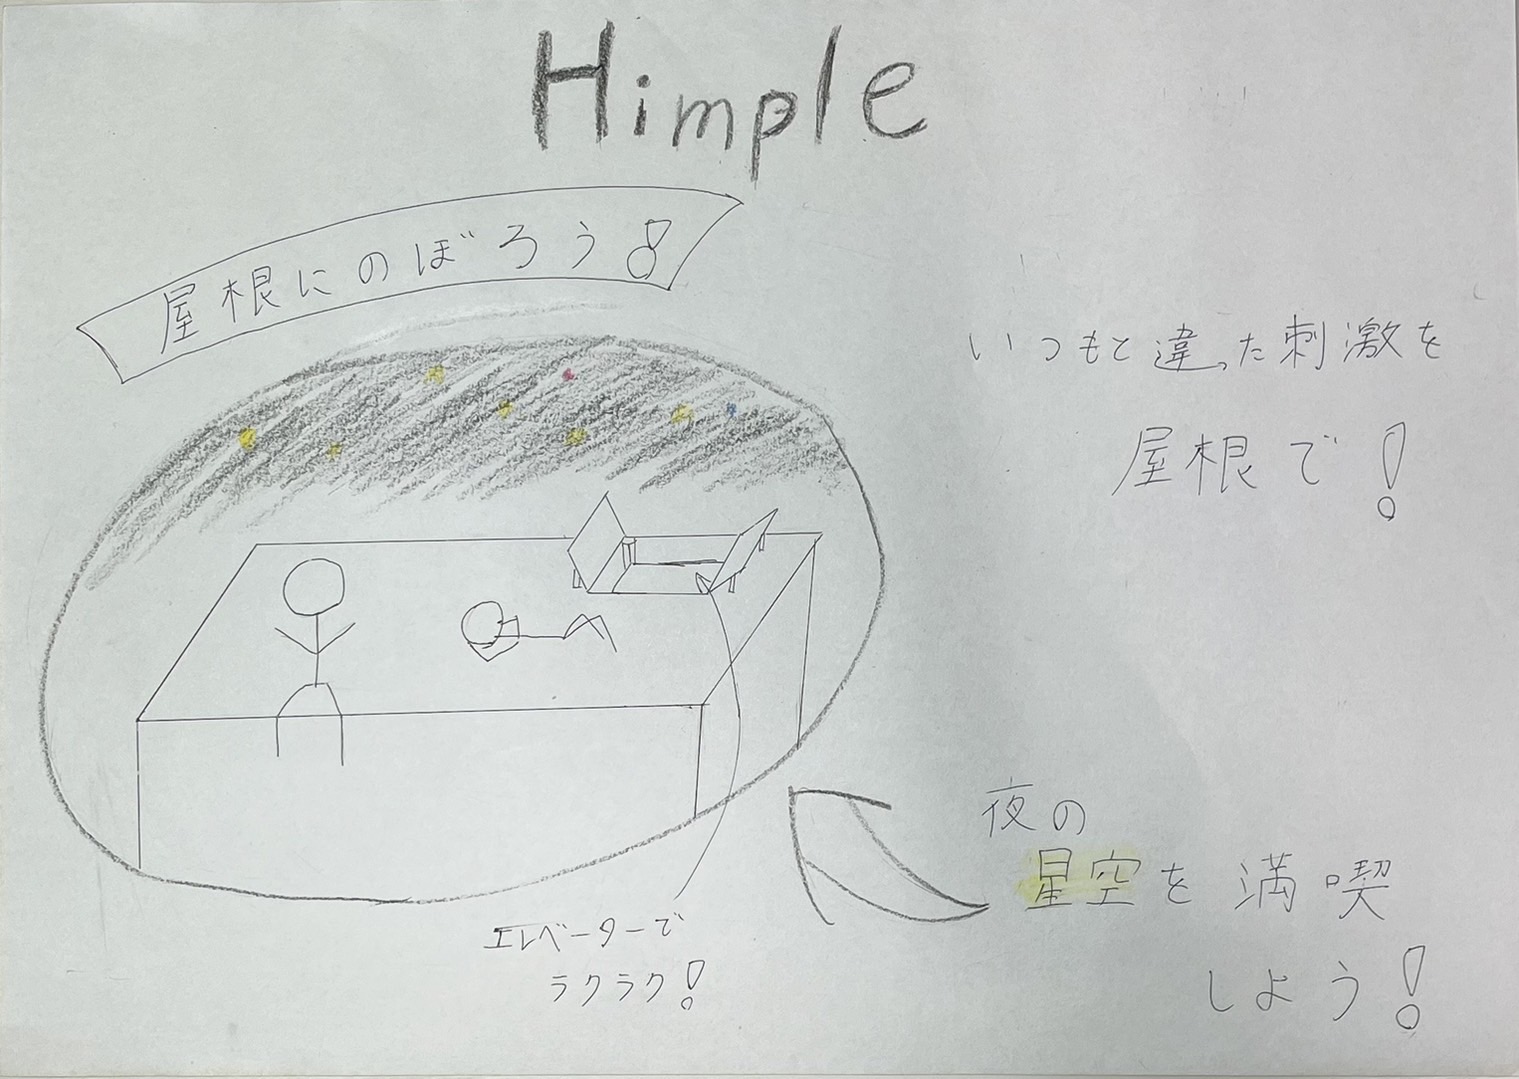 Himple
屋根にのぼろう!
いつもと違った刺激を
屋根で!
夜の
星空を満喫
しよう!
エレベーターで
ラクラク!